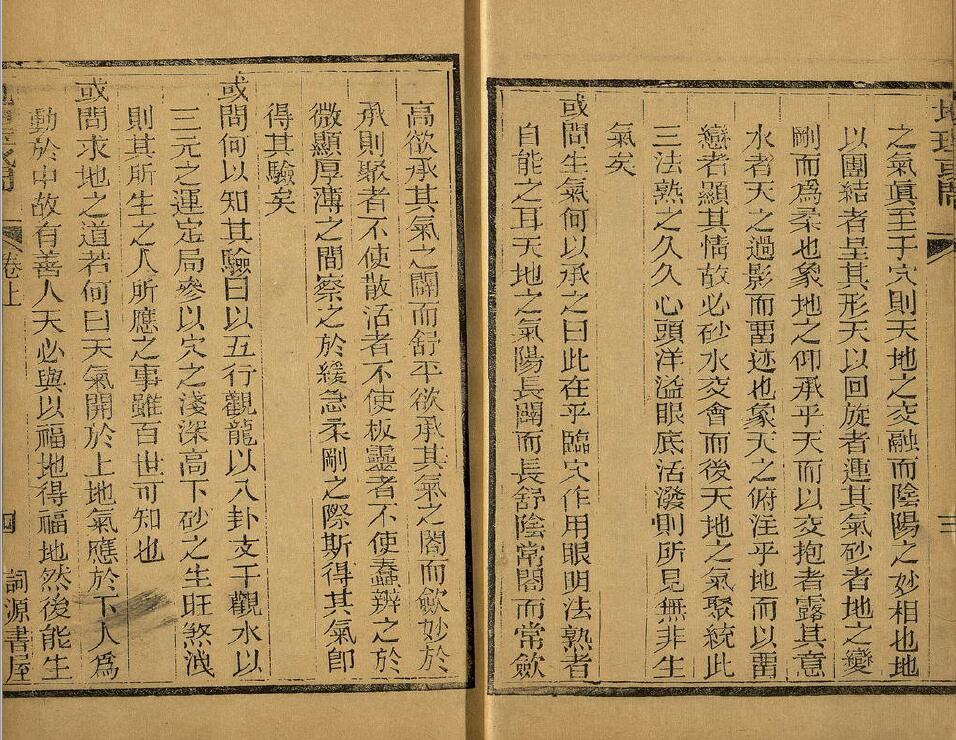 地理或問
三
之氣真至于穴則天地之交融而陰陽之妙相也地
以團結者呈其形天以回旋者運其氣砂者地之變
剛而為柔也象地之仰承乎天而以交抱者露其意
水者天之過影而畱迹也象天之俯注乎地而以畱
戀者顯其情故必砂水交會而後天地之氣聚統此
三法熟之久久心頭洋溢眼底活潑則所見無非生
氣矣
或問生氣何以承之曰此在乎臨穴作用眼明法熟者
自能之耳天地之氣陽長闢而長舒陰常闔而常歛
高欲承其氣之闢而舒平欲承其氣之闔而歛妙於
承則聚者不使散活者不使板靈者不使蠢辨之於
微顯厚薄之間察之於緩急柔剛之際斯得其氣卽
得其驗矣
或問何以知其驗曰以五行觀龍以八卦支干觀水以
三元之運定局參以穴之淺深高下砂之生旺煞洩
則其所生之人所應之事雖百世可知也
或問求地之道若何曰天氣開於上地氣應於下人為
動於中故有善人天必與以福地得福地然後能生
卷上
四
詞源書屋